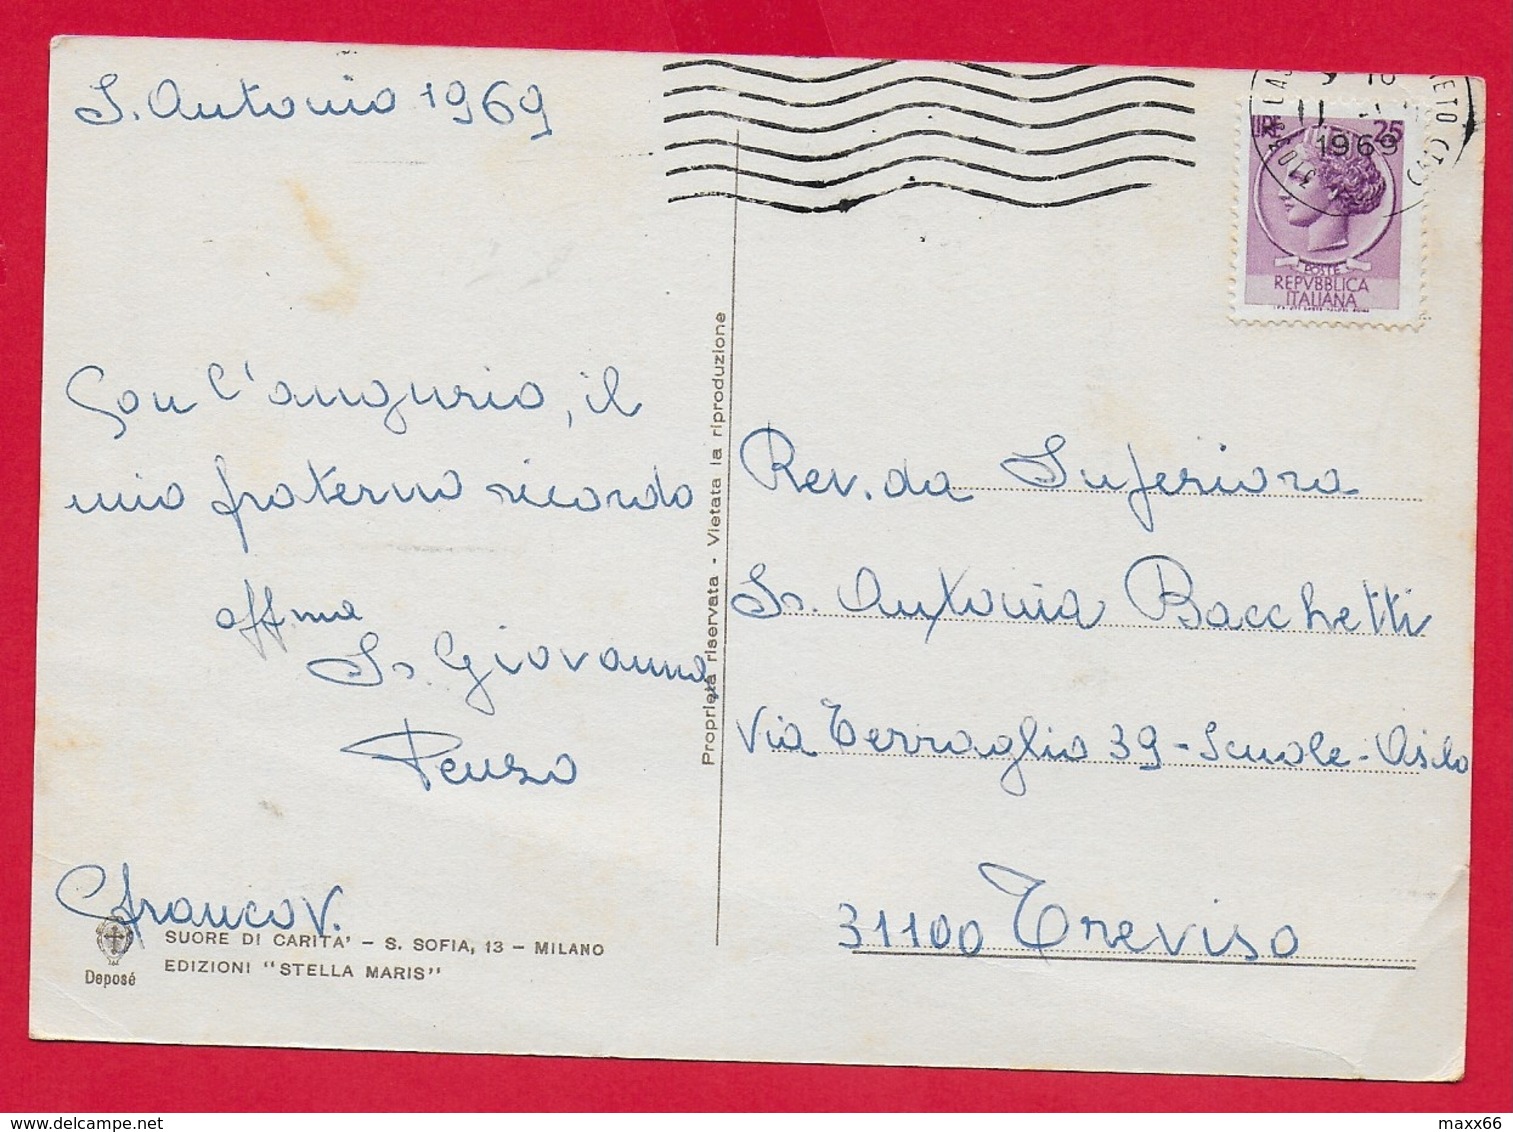 S. Antonio 1969
Con l'augurio, il
mio fraterno ricordo
aff.ma
Sr. Giovanna
Penso
Franca V.
SUORE DI CARITA' – S. SOFIA, 13 – MILANO
EDIZIONI "STELLA MARIS"
Deposé
Proprietà riservata - Vietata la riproduzione
25
1969
POSTE
REPVBBLICA
ITALIANA
Rev.da Superiora
Sr. Antonia Bacchetti
Via Terraglio 39 - Scuole - Asilo
31100 Treviso
maxx66